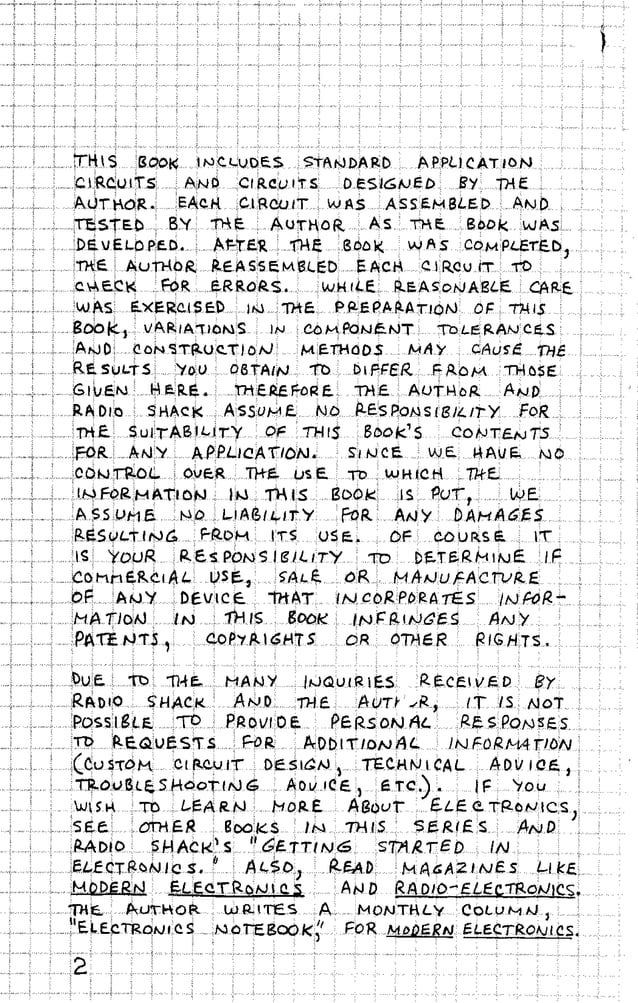 THIS BOOK INCLUDES STANDARD APPLICATION
CIRCUITS AND CIRCUITS DESIGNED BY THE
AUTHOR. EACH CIRCUIT WAS ASSEMBLED AND
TESTED BY THE AUTHOR AS THE BOOK WAS
DEVELOPED. AFTER THE BOOK WAS COMPLETED,
THE AUTHOR REASSEMBLED EACH CIRCUIT TO
CHECK FOR ERRORS. WHILE REASONABLE CARE
WAS EXERCISED IN THE PREPARATION OF THIS
BOOK, VARIATIONS IN COMPONENT TOLERANCES
AND CONSTRUCTION METHODS MAY CAUSE THE
RESULTS YOU OBTAIN TO DIFFER FROM THOSE
GIVEN HERE. THEREFORE THE AUTHOR AND
RADIO SHACK ASSUME NO RESPONSIBILITY FOR
THE SUITABILITY OF THIS BOOK'S CONTENTS
FOR ANY APPLICATION. SINCE WE HAVE NO
CONTROL OVER THE USE TO WHICH THE
INFORMATION IN THIS BOOK IS PUT, WE
ASSUME NO LIABILITY FOR ANY DAMAGES
RESULTING FROM ITS USE. OF COURSE IT
IS YOUR RESPONSIBILITY TO DETERMINE IF
COMMERCIAL USE, SALE OR MANUFACTURE
OF ANY DEVICE THAT INCORPORATES INFOR-
MATION IN THIS BOOK INFRINGES ANY
PATENTS, COPYRIGHTS OR OTHER RIGHTS.
DUE TO THE MANY INQUIRIES RECEIVED BY
RADIO SHACK AND THE AUTHOR, IT IS NOT
POSSIBLE TO PROVIDE PERSONAL RESPONSES
TO REQUESTS FOR ADDITIONAL INFORMATION
(CUSTOM CIRCUIT DESIGN, TECHNICAL ADVICE,
TROUBLESHOOTING ADVICE, ETC.). IF YOU
WISH TO LEARN MORE ABOUT ELECTRONICS,
SEE OTHER BOOKS IN THIS SERIES AND
RADIO SHACK'S "GETTING STARTED IN
ELECTRONICS." ALSO, READ MAGAZINES LIKE
MODERN ELECTRONICS AND RADIO-ELECTRONICS.
THE AUTHOR WRITES A MONTHLY COLUMN,
"ELECTRONICS NOTEBOOK," FOR MODERN ELECTRONICS.
2